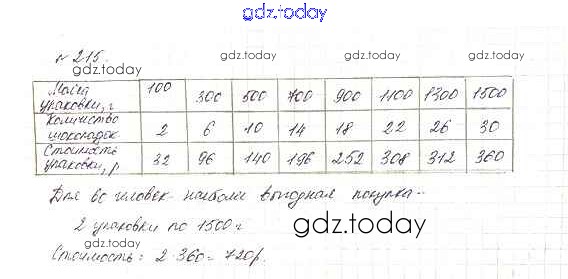 gdz.today
№ 215.
gdz.today
gdz.today
gdz.today
Масса упаковки, г 100 300 500 700 900 1100 1300 1500
Количество шоколадок 2 6 10 14 18 22 26 30
Стоимость упаковки, р 32 96 140 196 252 308 312 360
Для 60 человек наиболее выгодная покупка -
2 упаковки по 1500 г
gdz.today
Стоимость: 2·360=720р.